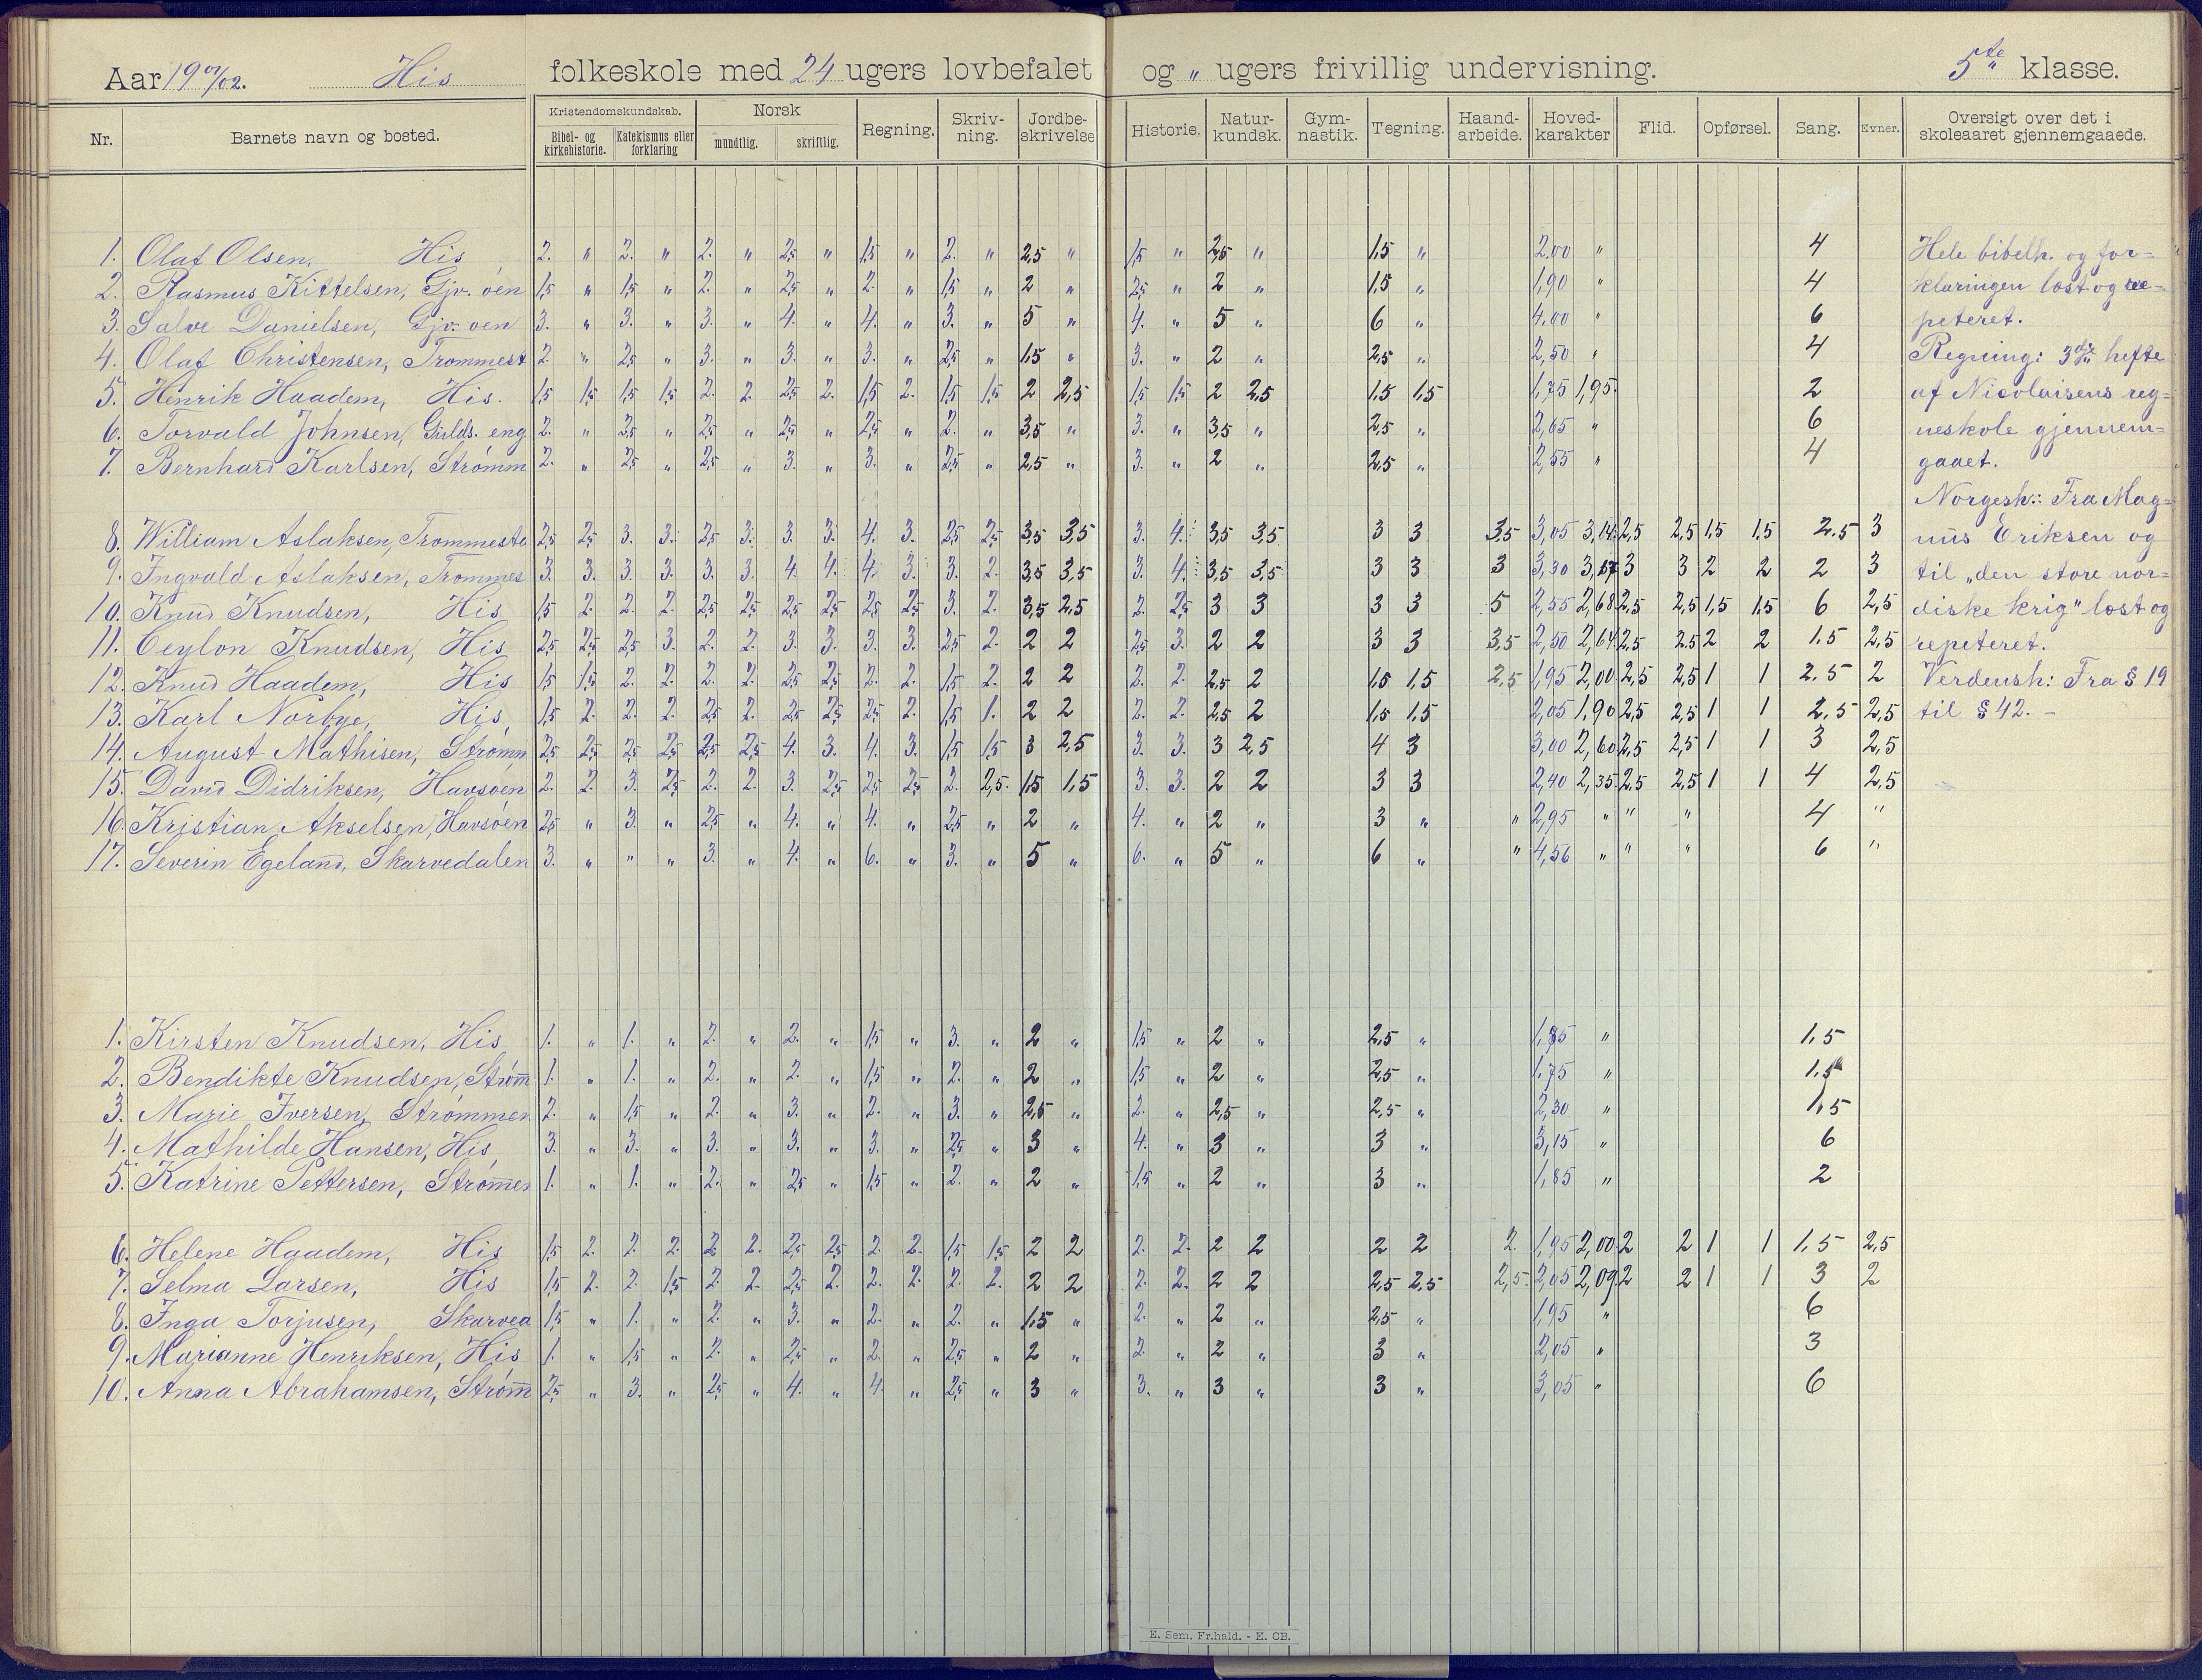 Aar 1901/02. His folkeskole med 24 ugers lovbefalet og „ ugers frivillig undervisning. 5te klasse.
Nr. Barnets navn og bosted. Kristendomskundskab. Bibel- og kirkehistorie. Katekismus eller forklaring Norsk mundtlig. skriftlig. Regning. Skriv-ning. Jordbe-skrivelse Historie. Natur-kundsk. Gym-nastik. Tegning. Haand-arbeide. Hoved-karakter Flid. Opførsel. Sang. Evner. Oversigt over det i skoleaaret gjennemgaaede.
1. Olaf Olsen, His 2. „ 2. „ 2. „ 2,5 „ 1,5 „ 2. „ 2,5 „ 1,5 „ 2,5 „ 1,5 „ 2,00 „ 4 Hele bibelh. og for=
2. Rasmus Kittelsen, Gjv. øen 1,5 „ 1,5 „ 2. „ 2,5 „ 2. „ 1,5 „ 2 „ 2,5 „ 2 „ 1,5 „ 1,90 „ 4 klaringen læst og re=
3. Salve Danielsen, Gjv. øen 3. „ 3. „ 3. „ 4. „ 4. „ 3. „ 5 „ 4. „ 5 „ 6 „ 4,00 „ 6 peteret.
4. Olaf Christensen, Trommest 2. „ 2,5 „ 3. „ 3. „ 3. „ 2,5 „ 1,5 „ 3. „ 2 „ 2,5 „ 2,50 „ 4 Regning: 3die hefte
5. Henrik Haadem, His. 1,5 1,5 1,5 1,5 2. 2. 2,5 2. 1,5 2. 1,5 1,5 2 2,5 1,5 1,5 2 2,5 1,5 1,5 1,75 1,95. 2 af Nicolaisens reg=
6. Torvald Johnsen, Gulds. eng 2. „ 2,5 „ 2,5 „ 2,5 „ 2,5 „ 2. „ 3,5 „ 3. „ 3,5 „ 2,5 „ 2,65 „ 6 neskole gjennem=
7. Bernhard Karlsen, Strømm 2. „ 2,5 „ 2,5 „ 3. „ 3. „ 2,5 „ 2,5 „ 3. „ 2 „ 2,5 „ 2,55 „ 4 gaaet.
Norgesh.: Fra Mag=
8. William Aslaksen, Trommesta 2,5 2,5 3. 3. 2,5 3. 3. 3. 4. 3. 2,5 2,5 3,5 3,5 3. 4. 3,5 3,5 3 3 3,5 3,05 3,14. 2,5 2,5 1,5 1,5 2.5 3 nus Eriksen og
9. Ingvald Aslaksen, Trommes 3. 3. 3. 3. 3. 3. 4. 4. 4. 3. 3. 2. 3,5 3,5 3. 4. 3,5 3,5 3 3 3 3,30 3,17 3 3 2 2 2 3 til „den store nor=
10. Knud Knudsen, His 1,5 2. 2. 2. 2,5 2,5 2,5 2,5 2,5 2,5 3. 2. 3,5 2,5 2. 2,5 3 3 3 3 5 2,55 2,68 2,5 2,5 1,5 1,5 6 2,5 diske krig" læst og
11. Ceylon Knudsen, His 2,5 2,5 2,5 3. 2. 2. 3. 3. 3. 3. 2,5 2. 2 2 2,5 3. 2 2 3 3 3,5 2,50 2,64. 2,5 2.5 2 2 1.5 2,5 repeteret.
12. Knud Haadem, His 1,5 1,5 2. 2. 2. 2. 2,5 2,5 2. 2. 1,5 2. 2 2 2. 2. 2,5 2 1,5 1,5 2,5 1,95 2,00 2,5 2,5 1 1 2.5 2 Verdensh: Fra § 19
13. Karl Norbye, His, 1,5 2. 2. 2. 2,5 2. 2,5 2,5 2,5 2. 1,5 1. 2 2 2. 2. 2,5 2 1,5 1,5 2,05 1,90 2,5 2,5 1 1 2,5 2,5 til § 42. —
14. August Mathisen, Strømn 2,5 2,5 2,5 2,5 2,5 2,5 4. 3. 4. 3. 1,5 1,5 3 2,5 3. 3. 3 2,5 4 3 3,00 2,60 2,5 2,5 1 1 3 2,5
15. David Didriksen, Havsøen 2. 2. 3. 2,5 2. 2. 3. 2,5 2,5 2,5 2. 2,5. 1,5 1,5 3. 3. 2 2 3 3 2,40 2,35. 2,5 2,5 1 1 4 2,5
16. Kristian Akselsen, Havsøen 2,5 „ 3. „ 2,5 „ 4. „ 4. „ 2,5 „ 2 „ 4. „ 2 „ 3 „ „ 2,95 „ „ „ 4 „
17. Severin Egeland, Skarvedalen 3. „ „ „ 3. „ 4. „ 6. „ 3. „ 5 „ 6. „ 5 „ 6 „ „ 4,56 „ „ „ 6 „
1. Kirsten Knudsen, His 1. „ 1. „ 2. „ 2. „ 1,5 „ 3. „ 2 „ 1,5 „ 2 „ 2,5 „ 1,85 „ 1,5
2. Bendikte Knudsen, Strøm̅ 1. „ 1. „ 2. „ 2. „ 1,5 „ 2. „ 2 „ 1,5 „ 2 „ 2,5 „ 1,75 „ 1.5
3. Marie Iversen, Strømmen 2. „ 1,5 „ 2. „ 3. „ 2. „ 3. „ 2,5 „ 2. „ 2,5 „ 2,5 „ 2,30 „ 1,5
4. Mathilde Hansen, His, 3. „ 3. „ 3. „ 3. „ 3. „ 2,5 „ 3 „ 4. „ 3 „ 3 „ 3,15 „ 6
5. Katrine Pettersen, Strøm̅en 1. „ 1. „ 2. „ 2,5 „ 1,5 „ 2. „ 2 „ 1,5 „ 2 „ 3 „ 1,85 „ 2
6. Helene Haadem, His 1,5 2. 2. 2. 2 2. 2,5 2,5 2. 2. 1,5 1,5 2 2 2. 2. 2 2 2 2 2. 1,95 2,00 2 2 1 1 1,5 2,5
7. Selma Larsen, His 1,5 2. 2. 1,5 2. 2. 2,5 2. 2. 2. 2. 2. 2 2 2. 2. 2 2 2,5 2,5 2,5. 2,05 2,09 2 2 1 1 3 2
8. Inga Torjusen, Skarved 1,5 „ 1. „ 2. „ 3. „ 2. „ 2. „ 1,5 „ 2. „ 2 „ 2,5 „ 1,95 „ 6
9. Marianne Henriksen, His 1. „ 1,5 „ 2. „ 2,5 „ 2. „ 2,5 „ 2 „ 2. „ 2 „ 3 „ 2,05 „ 3
10. Anna Abrahamsen, Strøm̅ 2,5 „ 3. „ 2,5 „ 4. „ 4. „ 2,5 „ 3 „ 3. „ 3 „ 3 „ 3,05 „ 6
E. Sem, Fr.hald. - E. CB.